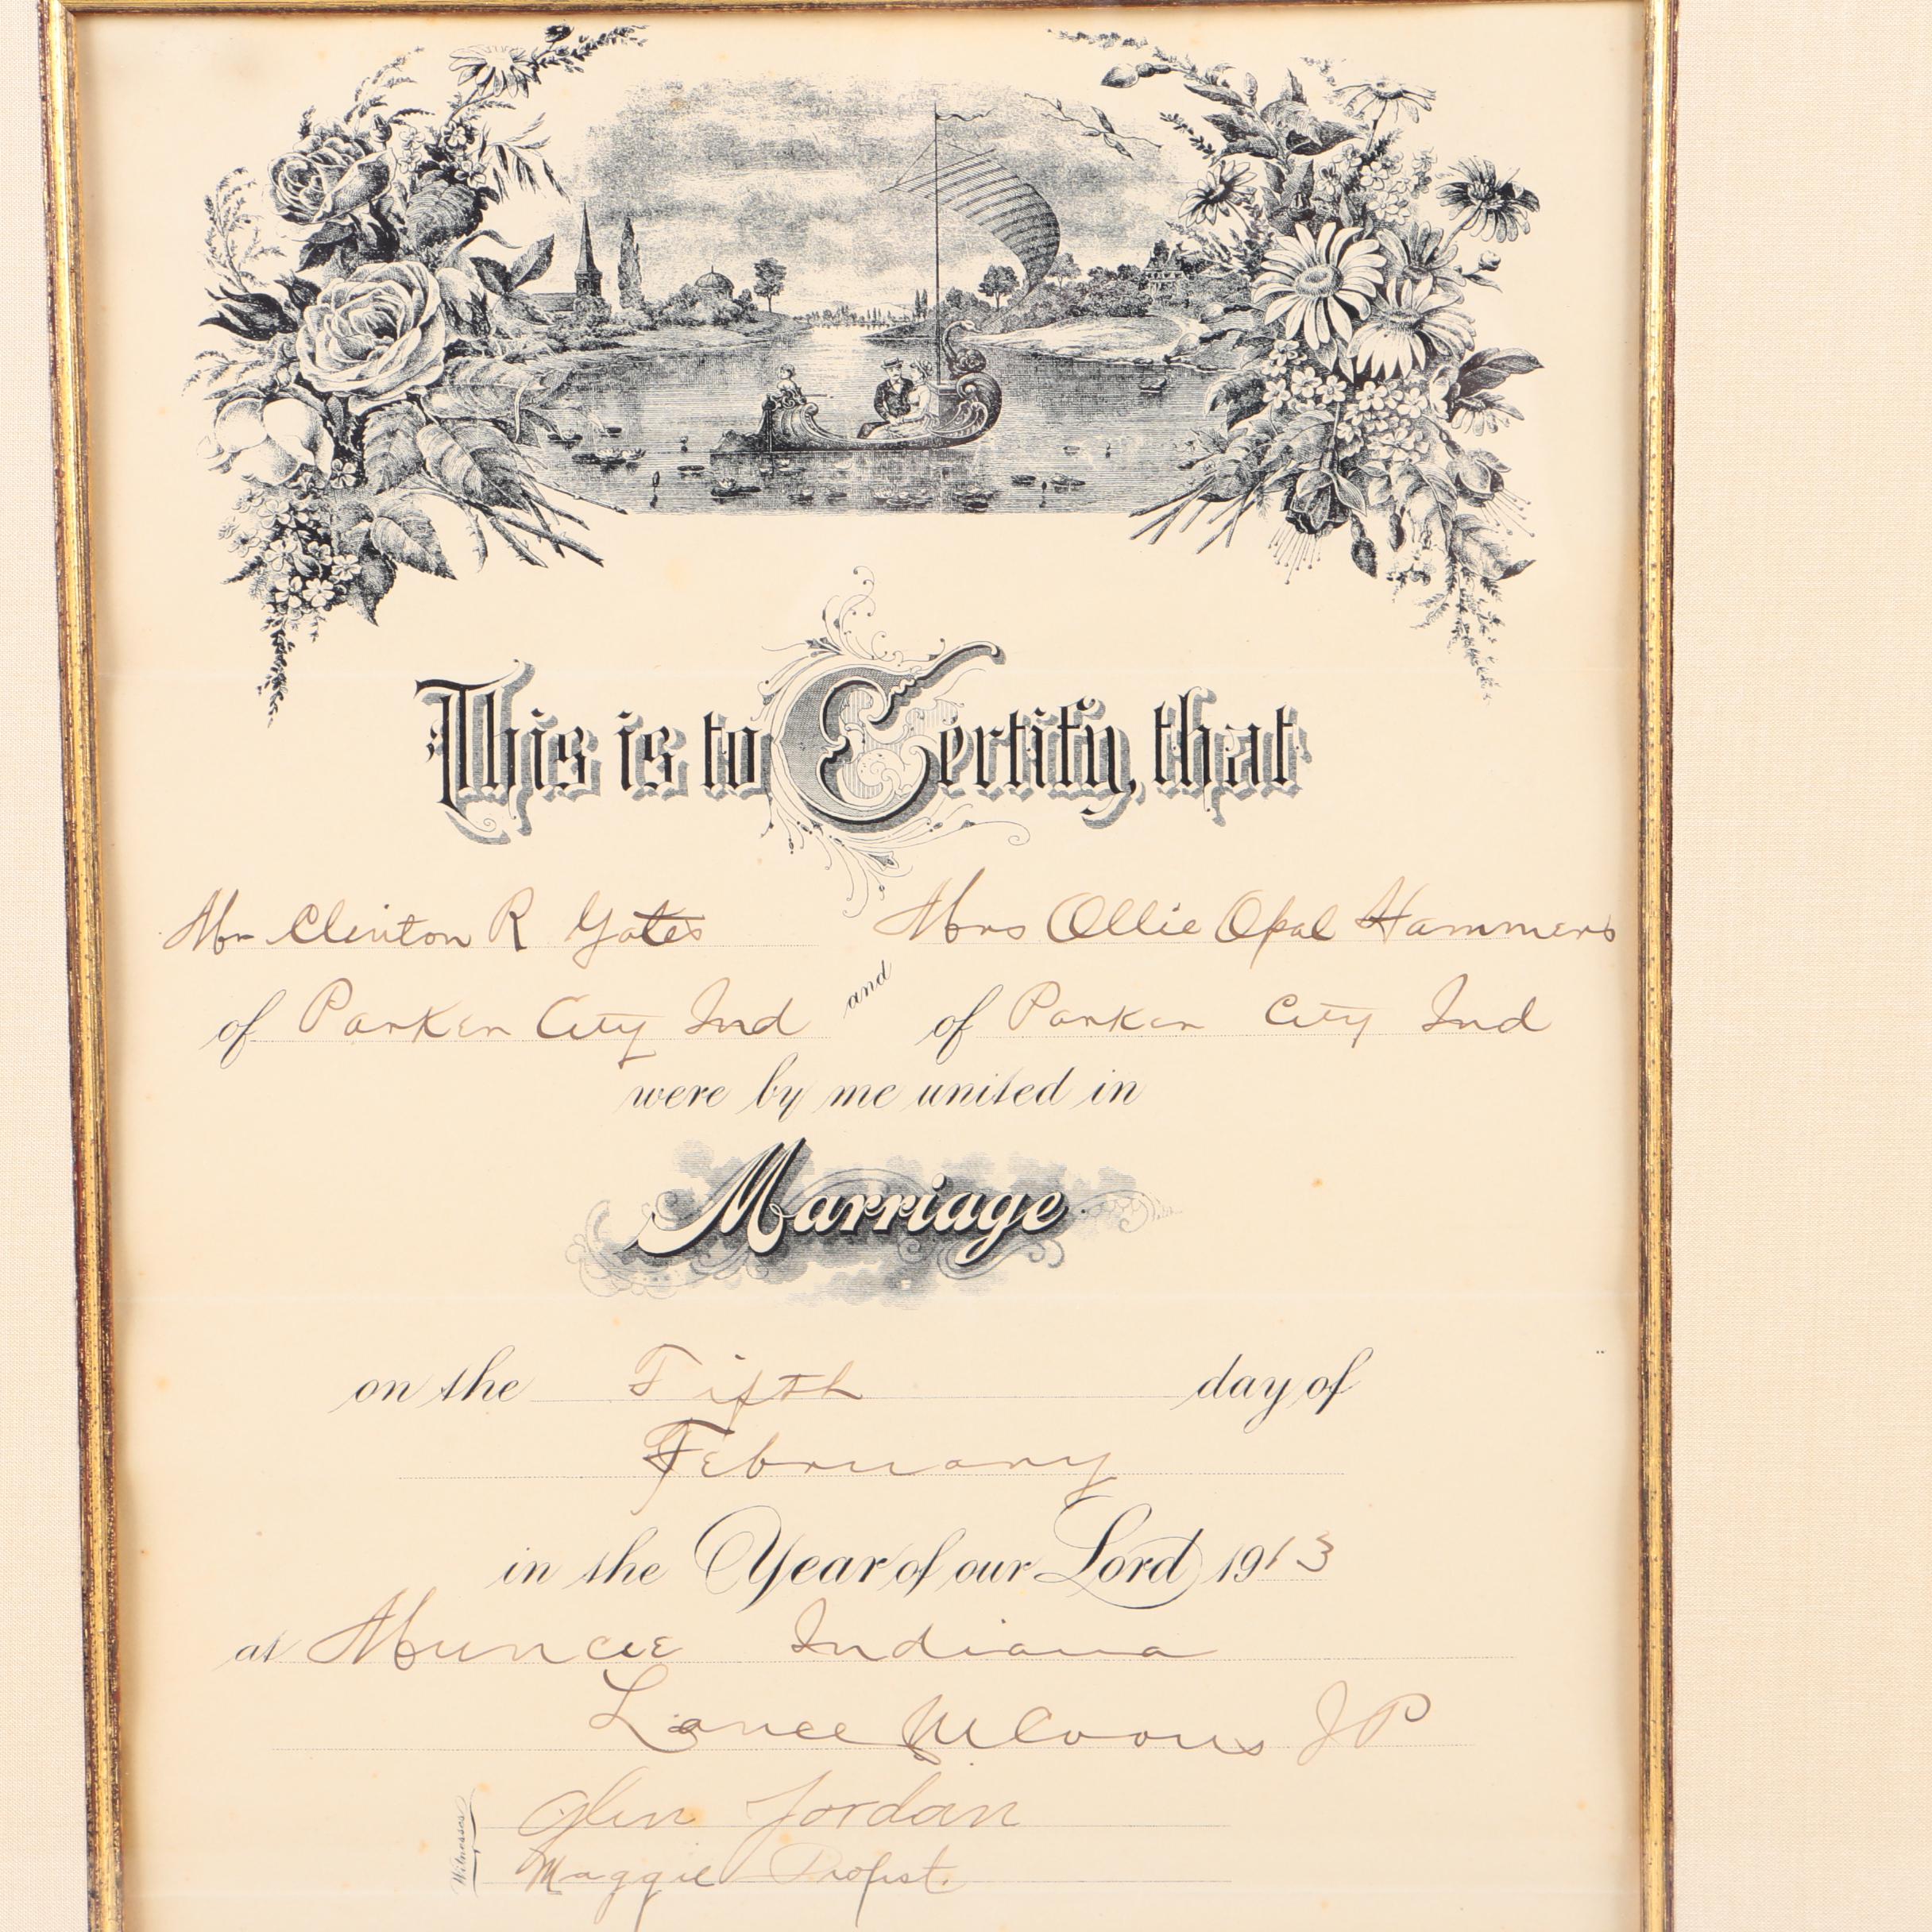 This is to Certify, that
Mr Clinton R Gates and Mrs Ollie Opal Hammers
of Parker City Ind of Parker City Ind
were by me united in
Marriage
on the Fifth day of
February
in the Year of our Lord 1913
at Muncie Indiana
Lance M Coons JP
Witnesses
Glen Jordan
Maggie Propst.